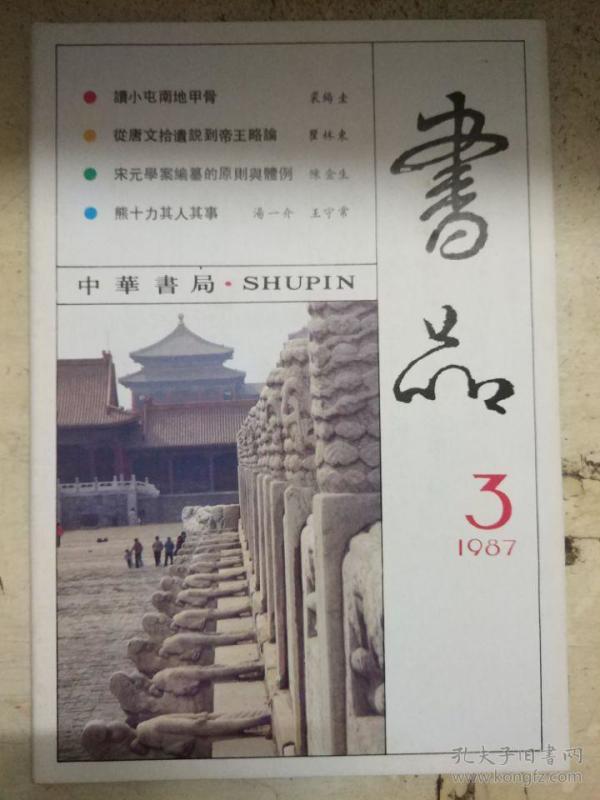 讀小屯南地甲骨 裘錫圭
從唐文拾遺説到帝王略論 瞿林東
宋元學案編纂的原則與體例 陳金生
熊十力其人其事 湯一介 王守常
中華書局·SHUPIN
書品
3
1987
孔夫子旧書网
www.kongfz.com